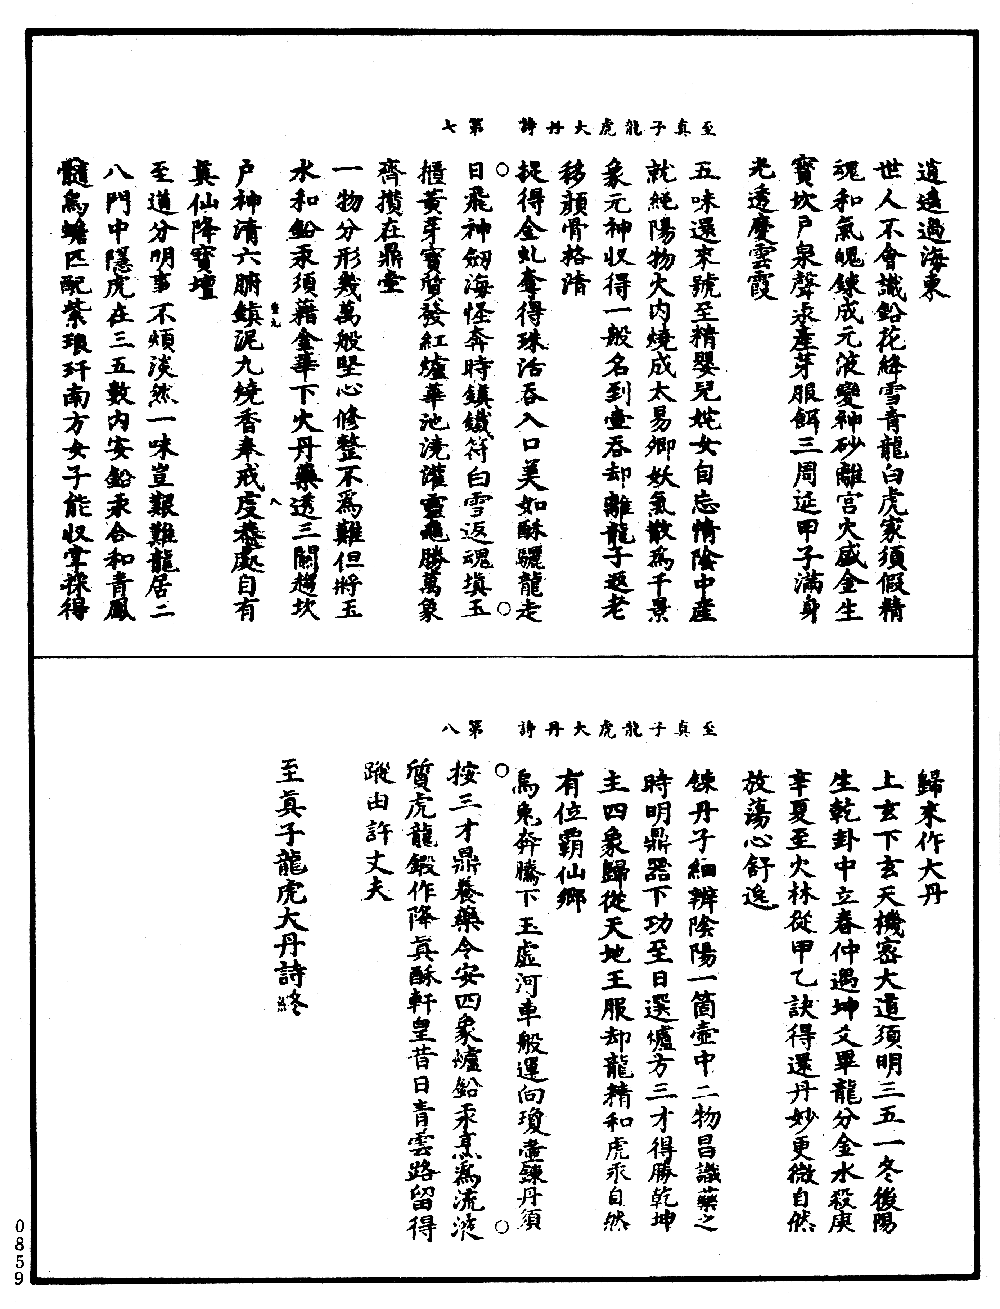 至真子龍虎大丹詩　第七
逍遙過海東
世人不會識鉛花絳雪青龍白虎家須假精
魂和氣魄鍊成元液變神砂離宮火盛金生
寶坎戶泉聲汞產芽服餌三周延甲子滿身
光透慶雲霞
五味還來號至精嬰兒姹女自忘情陰中產
就純陽物火內燒成太易卿妖氣散為千景
象元神収得一般名到壺吞却離龍子返老
移顏骨格清
捉得金虬奪得珠活吞入口美如酥驪龍走
日飛神劒海怪奔時鎮鐵符白雪返魂填玉
櫃黃芽寶質發紅爐華池澆灌靈龜勝萬象
齊攢在鼎壺
一物分形幾萬般堅心修整不為難但將玉
水和鉛汞須藉金華下火丹藥透三關趨坎
戶神清六腑鎮泥九繞香奉戒虔恭處自有
真仙降寶壇
至道分明事不煩淡然一味豈艱難龍居二
八門中隱虎在三五數內安鉛汞合和青鳳
髓烏蟾匹配紫琅玕南方女子能収掌採得
至真子龍虎大丹詩　第八
歸來作大丹
上玄下玄天機密大道須明三五一冬後陽
生乾卦中立春仲遇坤爻畢龍分金水殺庚
辛夏至火林從甲乙訣得還丹妙更微自然
放蕩心舒逸
鍊丹子細辨陰陽一箇壺中二物昌識藥之
時明鼎器下功至日選爐方三才得勝乾坤
主四象歸從天地王服却龍精和虎汞自然
有位霸仙鄉
烏兔奔騰下玉虛河車般運向瓊壺鍊丹須
按三才鼎養藥令安四象爐鉛汞烹為流液
質虎龍鍛作降真酥軒皇昔日青雲路留得
蹤由許丈夫
至真子龍虎大丹詩終
0859